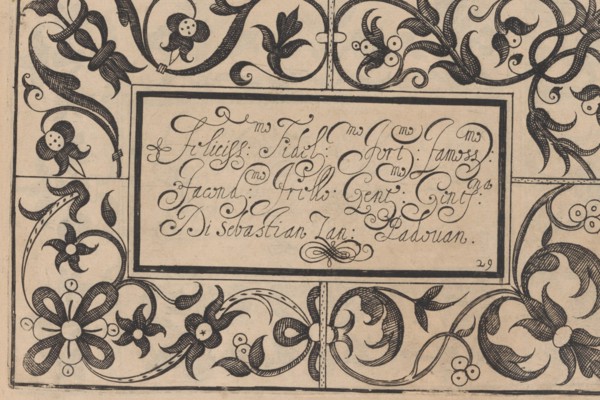 Feliciss:mo Fidel:mo Fort:mo Famoss:mo
Facond:mo Gent:mo
Di Sebastian Zan: Padouan.
29